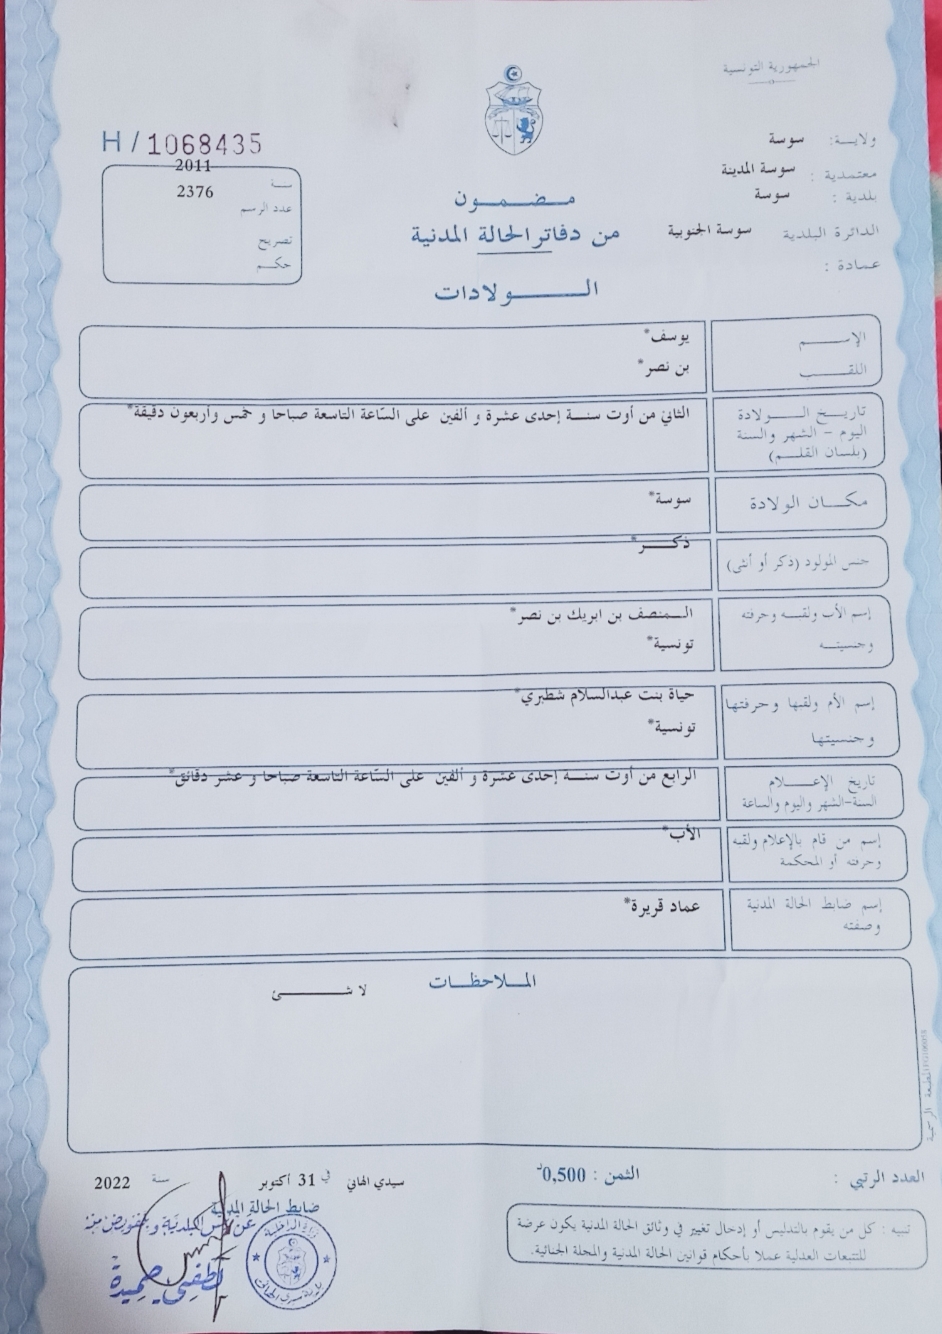 الجمهورية التونسية
ولاية: سوسة
معتمدية : سوسة المدينة
بلدية : سوسة
الدائرة البلدية سوسة الجنوبية
عمادة :
H / 1068435
سنة 2011
عدد الرسم 2376
تصريح
حكم
مضمون
من دفاتر الحالة المدنية
الولادات
الإسم يوسف*
اللقب بن نصر*
تاريخ الولادة الثاني من أوت سنة إحدى عشرة و ألفين على السّاعة التاسعة صباحا و خمس وأربعون دقيقة*
اليوم - الشهر والسنة
(بلسان القلم)
مكان الولادة سوسة*
جنس المولود (ذكر أو أنثى) ذكر*
إسم الأب ولقبه وحرفته المنصف بن ابريك بن نصر*
وجنسيته تونسية*
إسم الأم ولقبها وحرفتها حياة بنت عبدالسلام شطبري*
وجنسيتها تونسية*
تاريخ الإعلام الرابع من أوت سنة إحدى عشرة و ألفين على السّاعة التاسعة صباحا و عشر دقائق*
السنة-الشهر واليوم والساعة
إسم من قام بالإعلام ولقبه الأب*
وحرفته أو المحكمة
إسم ضابط الحالة المدنية عماد قريرة*
وصفته
الملاحظات
لا شئ
المطبعة الرسمية
العدد الرتبي :
الثمن : 0,500د
سيدي الهاني في 31 أكتوبر سنة 2022
ضابط الحالة المدنية
عن رئيس البلدية و بتفويض منه
لطفي حميدة
وزارة الداخلية
بلدية سيدي الهاني
تنبيه : كل من يقوم بالتدليس أو إدخال تغيير في وثائق الحالة المدنية يكون عرضة
للتتبعات العدلية عملا بأحكام قوانين الحالة المدنية والمجلة الجنائية.